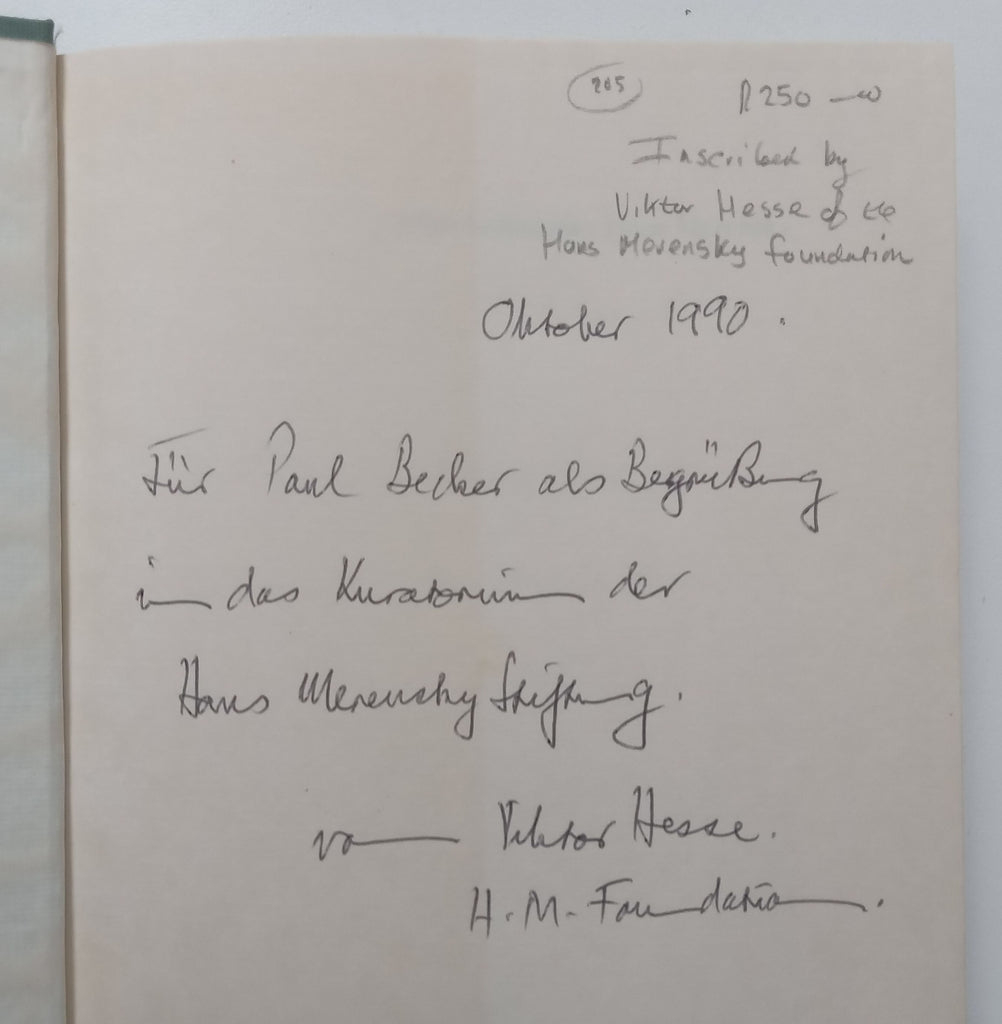 205 R250 —00
Inscribed by
Viktor Hesse of the
Hans Merensky Foundation
Oktober 1990.
Für Paul Becker als Begrüßung
in das Kuratorium der
Hans Merensky Stiftung.
von Viktor Hesse.
H.M. Foundation.